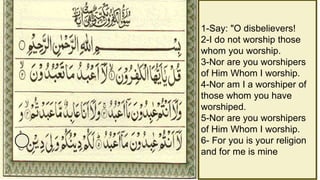 بِسْمِ اللهِ الرَّحْمٰنِ الرَّحِيْمِ
قُلْ يٰۤاَيُّهَا الْكٰفِرُوْنَ لَاۤ اَعْبُدُ مَا تَعْبُدُوْنَ
وَلَاۤ اَنْتُمْ عٰبِدُوْنَ مَاۤ اَعْبُدُ وَلَاۤ اَنَا عَابِدٌ مَّا عَبَدْتُّمْ وَ
لَاۤ اَنْتُمْ عٰبِدُوْنَ مَاۤ اَعْبُدُ لَكُمْ دِيْنُكُمْ وَلِيَ دِيْنِ
1-Say: "O disbelievers!
2-I do not worship those
whom you worship.
3-Nor are you worshipers
of Him Whom I worship.
4-Nor am I a worshiper of
those whom you have
worshiped.
5-Nor are you worshipers
of Him Whom I worship.
6- For you is your religion
and for me is mine